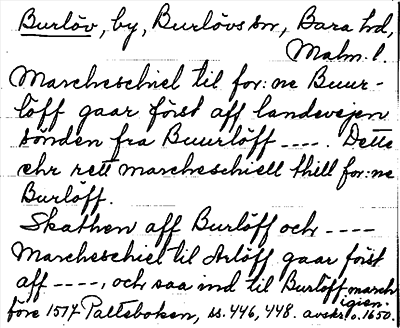 Burlöv, by, Burlövs sn, Bara hd,
Malm. l.
Marcheschiel til for:ne Buur-
löff gaar först aff landevejen
sönden fra Buurlöff ----. Dette
ehr rett marcheschiell thill for:ne
Burlöff.
Skathen aff Burlöff och ----
Marcheschiel til Arlöff gaar först
aff ----, och saa ind til Burlöff march
igien.
före 1517 Palteboken, ss. 446, 448. avskr. c. 1650.